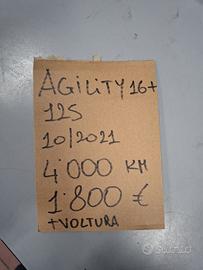 AGILITY 16+
125
10/2021
4'000 KM
1'800 €
+ VOLTURA